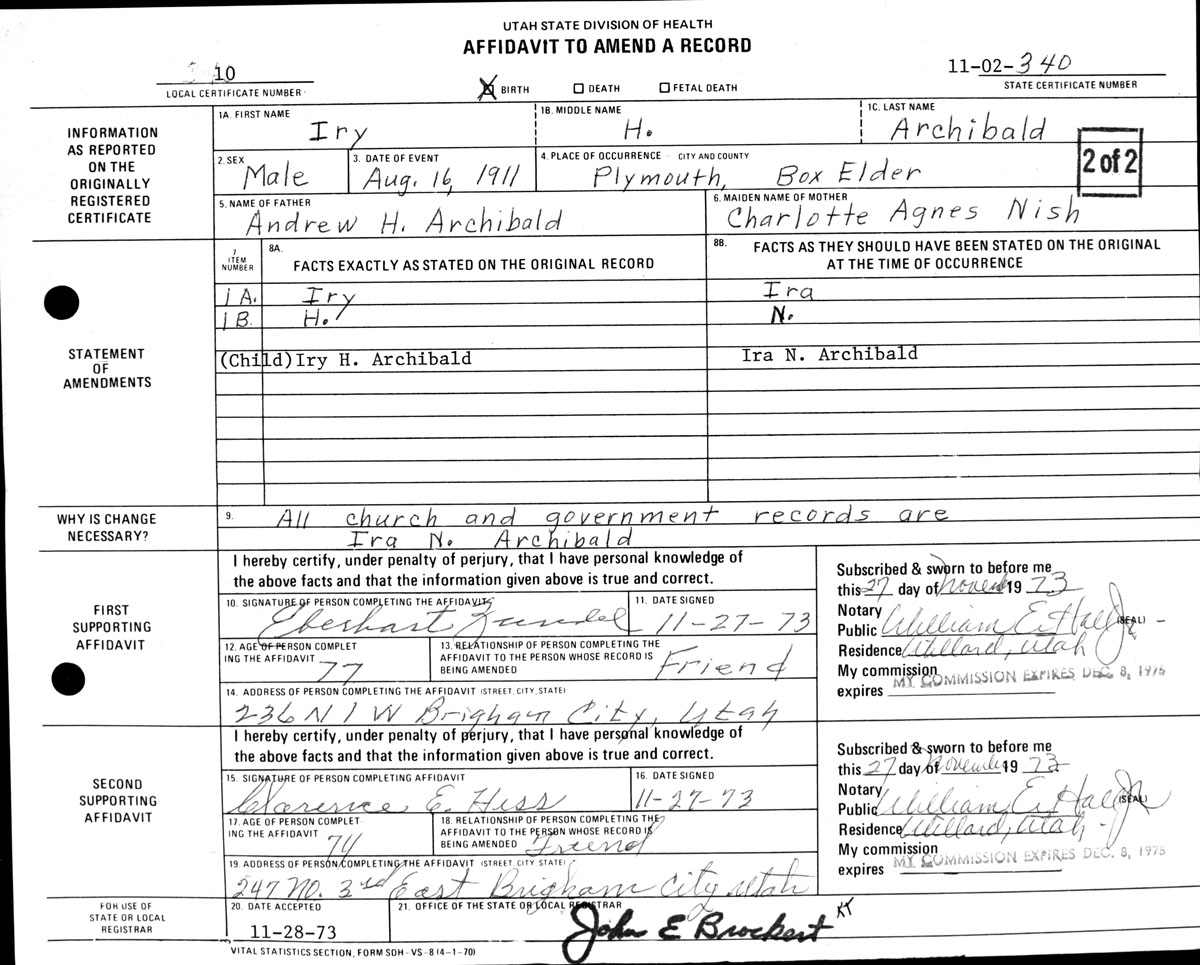 UTAH STATE DIVISION OF HEALTH
AFFIDAVIT TO AMEND A RECORD
10
LOCAL CERTIFICATE NUMBER
BIRTH DEATH FETAL DEATH
11-02-340
STATE CERTIFICATE NUMBER
INFORMATION
AS REPORTED
ON THE
ORIGINALLY
REGISTERED
CERTIFICATE
1A. FIRST NAME 1B. MIDDLE NAME 1C. LAST NAME
Iry H. Archibald
2. SEX 3. DATE OF EVENT 4. PLACE OF OCCURRENCE - CITY AND COUNTY
Male Aug. 16, 1911 Plymouth, Box Elder
2 of 2
5. NAME OF FATHER 6. MAIDEN NAME OF MOTHER
Andrew H. Archibald Charlotte Agnes Nish
STATEMENT
OF
AMENDMENTS
7
ITEM
NUMBER
8A.
FACTS EXACTLY AS STATED ON THE ORIGINAL RECORD
8B. FACTS AS THEY SHOULD HAVE BEEN STATED ON THE ORIGINAL
AT THE TIME OF OCCURRENCE
1A. Iry Ira
1B H. N.
(Child)Iry H. Archibald Ira N. Archibald
WHY IS CHANGE
NECESSARY?
9. All church and government records are
Ira N. Archibald
FIRST
SUPPORTING
AFFIDAVIT
I hereby certify, under penalty of perjury, that I have personal knowledge of
the above facts and that the information given above is true and correct.
10. SIGNATURE OF PERSON COMPLETING THE AFFIDAVIT 11. DATE SIGNED
Eberhart Zundel 11-27-73
12. AGE OF PERSON COMPLET
ING THE AFFIDAVIT 77
13. RELATIONSHIP OF PERSON COMPLETING THE
AFFIDAVIT TO THE PERSON WHOSE RECORD IS
BEING AMENDED Friend
14. ADDRESS OF PERSON COMPLETING THE AFFIDAVIT (STREET, CITY, STATE)
236 N 1 W Brigham City, Utah
Subscribed & sworn to before me
this 27 day of November 19 73
Notary
Public William E. Hall Jr (SEAL)
Residence Willard, Utah
My commission
expires MY COMMISSION EXPIRES DEC. 8, 1975
SECOND
SUPPORTING
AFFIDAVIT
I hereby certify, under penalty of perjury, that I have personal knowledge of
the above facts and that the information given above is true and correct.
15. SIGNATURE OF PERSON COMPLETING AFFIDAVIT 16. DATE SIGNED
Clarence E. Hess 11-27-73
17. AGE OF PERSON COMPLET
ING THE AFFIDAVIT 74
18. RELATIONSHIP OF PERSON COMPLETING THE
AFFIDAVIT TO THE PERSON WHOSE RECORD IS
BEING AMENDED Friend
19. ADDRESS OF PERSON COMPLETING THE AFFIDAVIT (STREET, CITY STATE)
247 No. 3rd East Brigham City Utah
Subscribed & sworn to before me
this 27 day of November 19 73
Notary
Public William E. Hall Jr (SEAL)
Residence Willard, Utah
My commission
expires MY COMMISSION EXPIRES DEC. 8, 1975
FOR USE OF
STATE OR LOCAL
REGISTRAR
20. DATE ACCEPTED 21. OFFICE OF THE STATE OR LOCAL REGISTRAR
11-28-73 John E Brockert KT
VITAL STATISTICS SECTION, FORM SDH-VS-8 (4-1-70)